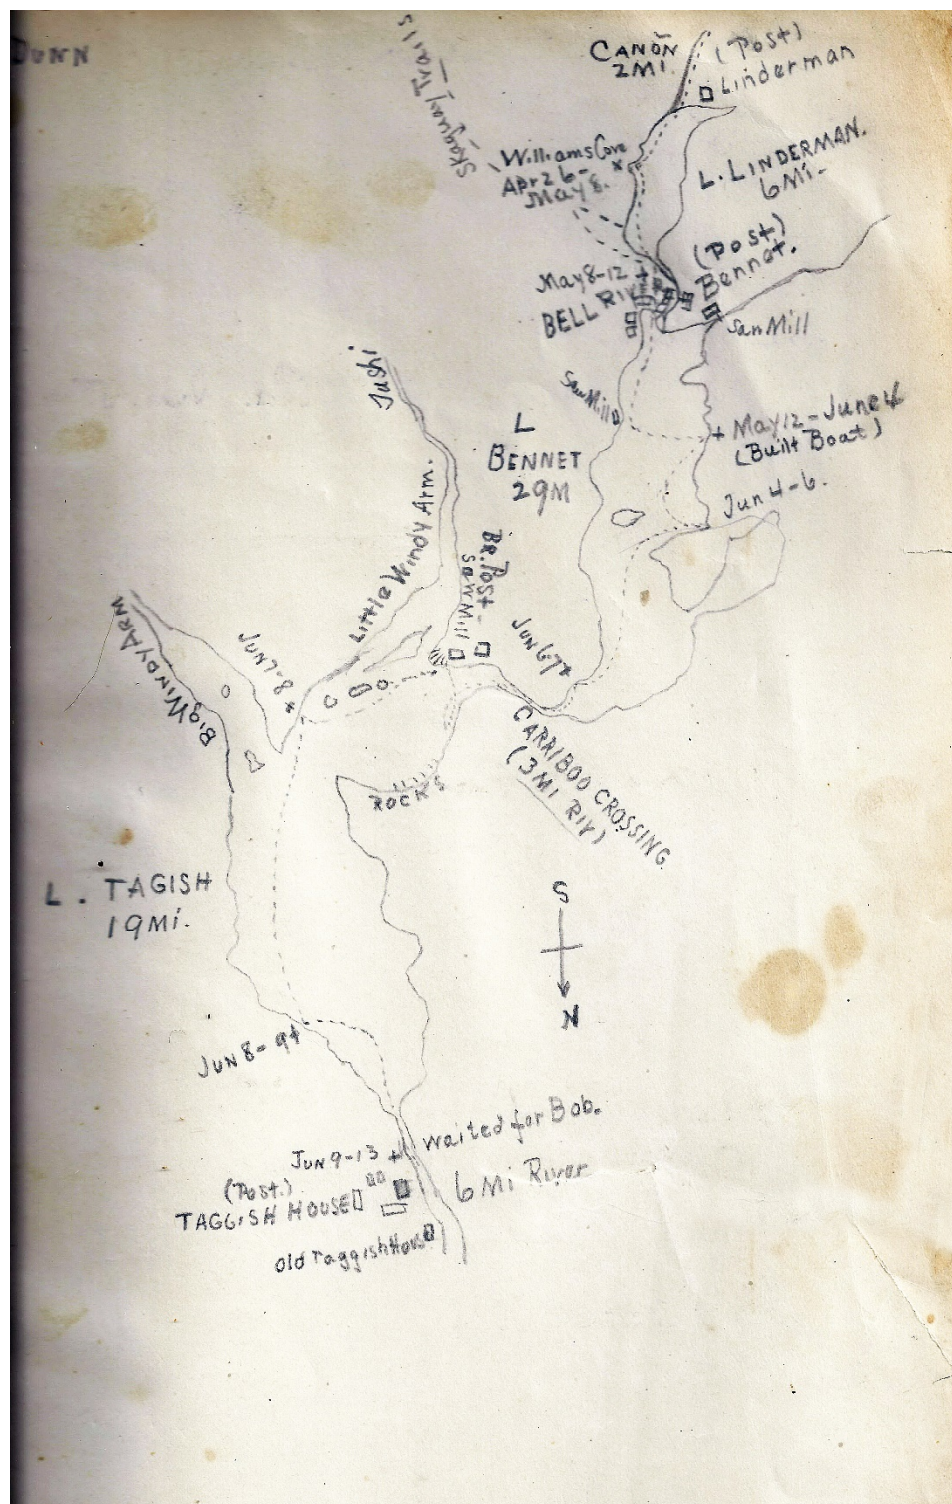 DUNN
Skaguay Trails
CANOÑ
2 MI.
(Post)
Linderman
Williams Cove
Apr 26-
May 8.
L. LINDERMAN.
6 Mi-
(Post)
Bennet.
May 8-12 +
BELL RIVER
Saw Mill
Saw Mill
+ May 12 - June 4
(Built Boat)
Jun 4-6.
L
BENNET
29M
LITTLE WINDY Arm.
BR. Post
SAW Mill
Jun 6, 7+
BIG WINDY ARM
JUN 7-8
CARRIBOO CROSSING
(3 MI RIV)
ROCKS
L. TAGISH
19 Mi.
S
N
JUN 8-9+
JUN 9-13 +
waited for Bob.
(Post.)
TAGGISH HOUSE
6 Mi River
Old Taggish House